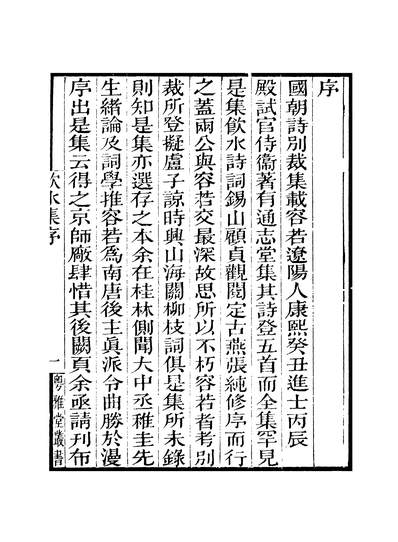 序
國朝詩別裁集載容若遼陽人康熙癸丑進士丙辰
殿試官侍衞著有通志堂集其詩登五首而全集罕見
是集飲水詩詞錫山顧貞觀閱定古燕張純修序而行
之蓋兩公與容若交最深故思所以不朽容若者考別
裁所登擬盧子諒時興山海關柳枝詞俱是集所未錄
則知是集亦選存之本余在桂林側聞大中丞稚圭先
生緒論及詞學推容若爲南唐後主眞派令曲勝於漫
序出是集云得之京師廠肆惜其後闕頁余亟請刊布
飲水集序
一
粵雅堂叢書